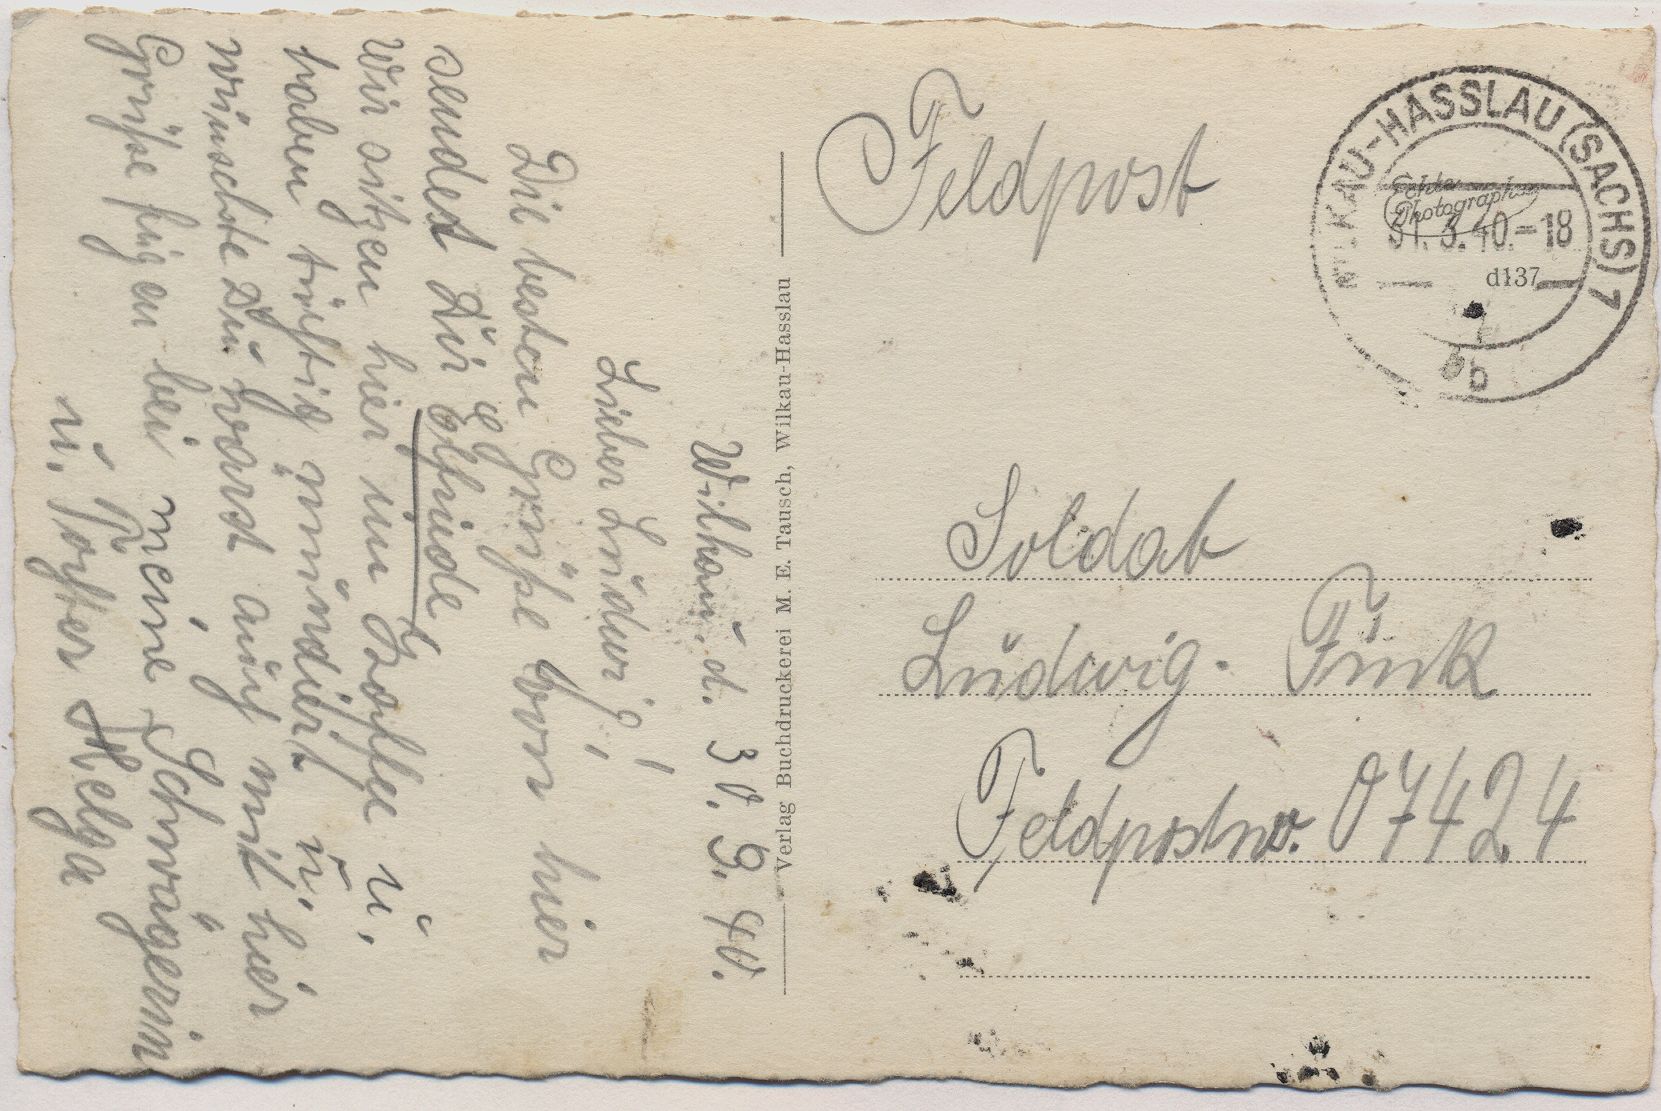 Wilkau, d. 30.3.40.
Lieber Ludwig!
Die besten Grüße von hier
sendet Dir
Wir sitzen hier im Kaffee u.
haben tüchtig u.
wünschte Du warst auch mit hier
Grüße fügen bei meine Schwägerin
u. Tochter Helga
Verlag Buchdruckerei M. E. Tausch, Wilkau-Hasslau
Feldpost
WILKAU-HASSLAU (SACHS) 1
Echte
Photographie
31.3.40.-18
d137
b
Soldat
Ludwig. Fink
Feldpostnr. 07424